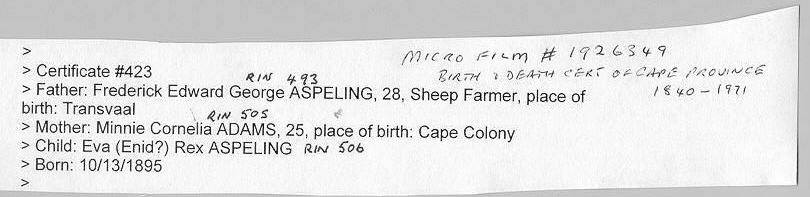 >
MICRO FILM # 1926349
> Certificate #423
RIN 493
BIRTH & DEATH CERT OF CAPE PROVINCE
> Father: Frederick Edward George ASPELING, 28, Sheep Farmer, place of
1840-1971
birth: Transvaal
RIN 505
> Mother: Minnie Cornelia ADAMS, 25, place of birth: Cape Colony
> Child: Eva (Enid?) Rex ASPELING RIN 506
> Born: 10/13/1895
>